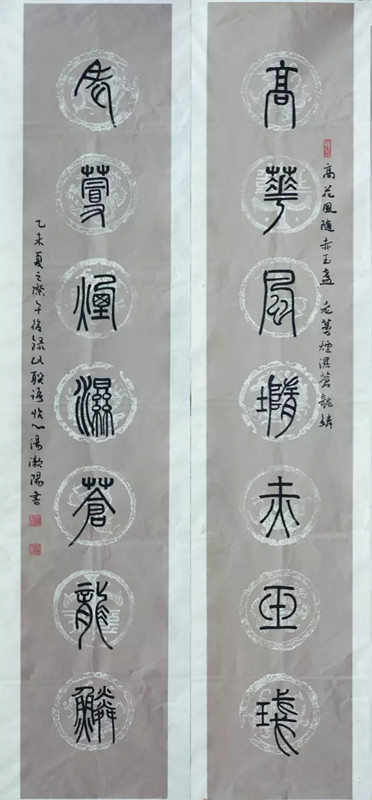 高花風隨赤玉盞 老蔓煙濕蒼龍鱗
高華風墮赤玉琖
老蔓煙濕蒼龍鱗
乙未夏之際午後錄此聯語怡心湯漱陽書